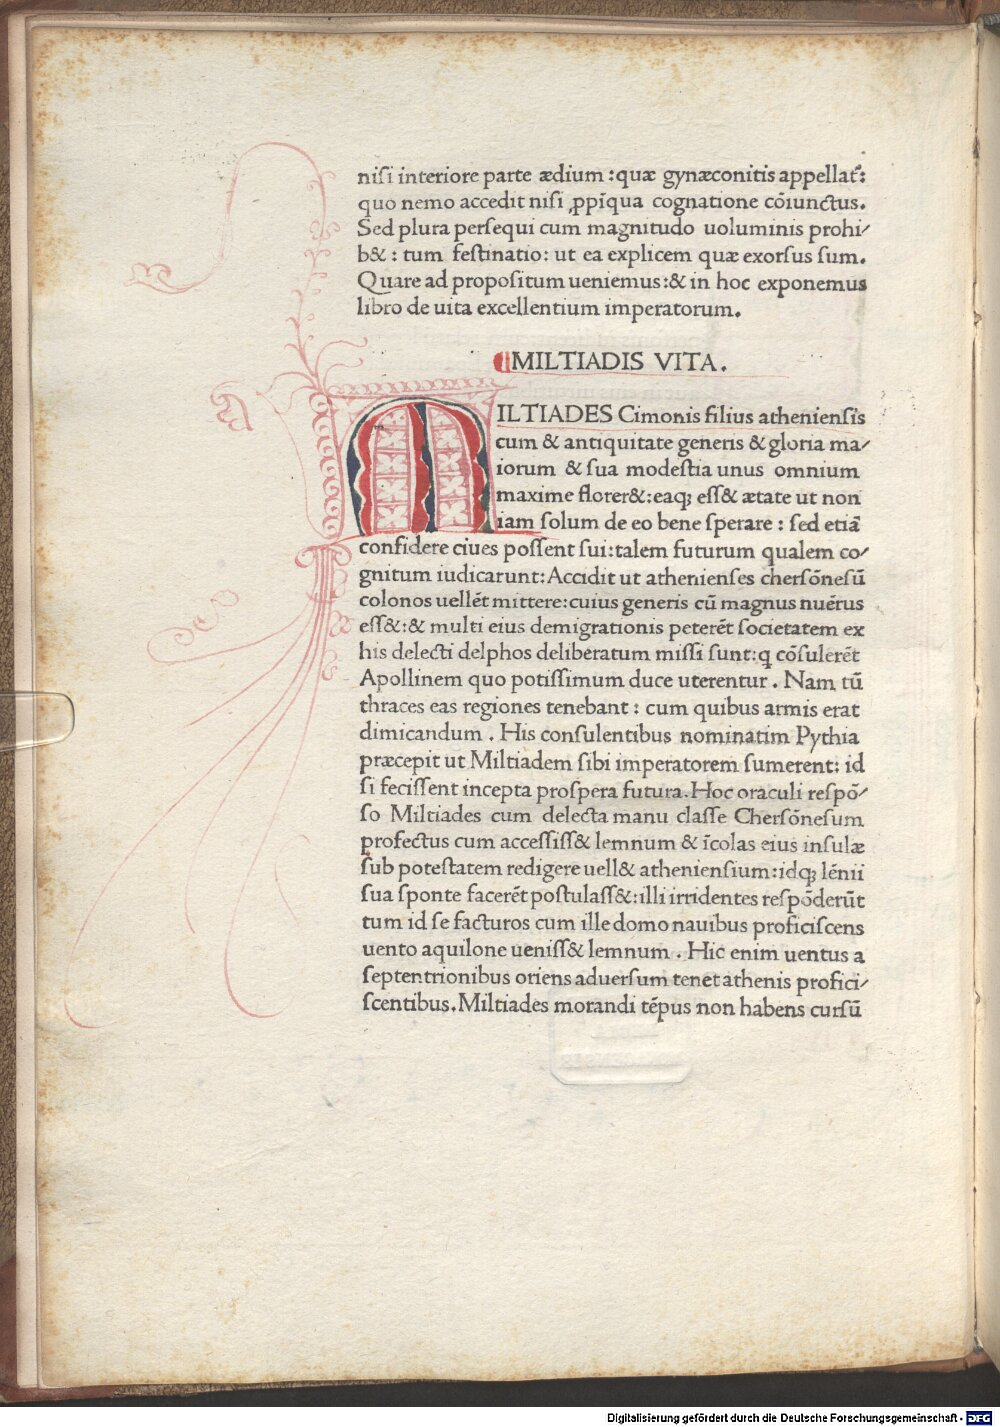 niſi interiore parte ædium : quæ gynæconitis appellat᷑:
quo nemo accedit niſi ꝓpīqua cognatione cōiunctus.
Sed plura perſequi cum magnitudo uoluminis prohi/
b& : tum feſtinatio: ut ea explicem quæ exorſus ſum.
Quare ad propoſitum ueniemus :& in hoc exponemus
libro de uita excellentium imperatorum.
MILTIADIS VITA.
MILTIADES Cimonis filius athenienſis
cum & antiquitate generis & gloria ma/
iorum & ſua modeſtia unus omnium
maxime florer&: eaqꝫ eſſ& ætate ut non
iam ſolum de eo bene ſperare : ſed etiā
confidere ciues poſſent ſui: talem futurum qualem co/
gnitum iudicarunt: Accidit ut athenienſes cherſōneſū
colonos uellēt mittere: cuius generis cū magnus nuērus
eſſ&:& multi eius demigrationis peterēt ſocietatem ex
his delecti delphos deliberatum miſſi ſunt: q cōſulerēt
Apollinem quo potiſſimum duce uterentur . Nam tū
thraces eas regiones tenebant : cum quibus armis erat
dimicandum . His conſulentibus nominatim Pythia
præcepit ut Miltiadem ſibi imperatorem ſumerent: id
ſi feciſſent incepta proſpera futura. Hoc oraculi reſpō/
ſo Miltiades cum delecta manu claſſe Cherſōneſum
profectus cum acceſſiſſ& lemnum & īcolas eius inſulæ
ſub poteſtatem redigere uell& athenienſium: idqꝫ lēnii
ſua ſponte facerēt poſtulaſſ&: illi irridentes reſpōderūt
tum id ſe facturos cum ille domo nauibus proficiſcens
uento aquilone ueniſſ& lemnum . Hic enim uentus a
ſeptentrionibus oriens aduerſum tenet athenis profici/
ſcentibus. Miltiades morandi tēpus non habens curſū
Digitalisierung gefördert durch die Deutsche Forschungsgemeinschaft - DFG